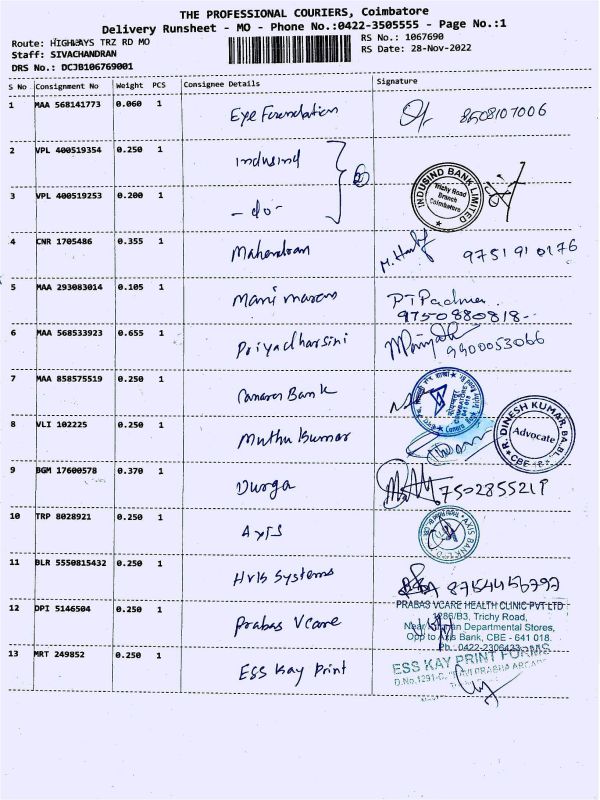 THE PROFESSIONAL COURIERS, Coimbatore
Delivery Runsheet - MO - Phone No.:0422-3505555 - Page No.:1
Route: HIGHWAYS TRZ RD MO
RS No.: 1067690
Staff: SIVACHANDRAN
RS Date: 28-Nov-2022
DRS No.: DCJB106769001
S No Consignment No Weight PCS Consignee Details Signature
1 MAA 568141773 0.060 1 Eye Foundation 8608107006
2 VPL 400519354 0.250 1 Indusind
3 VPL 400519253 0.200 1 - do -
INDUSIND BANK LIMITED
Trichy Road
Branch
Coimbatore
4 CNR 1705486 0.355 1 Mahendran 9751910176
5 MAA 293083014 0.105 1 Manimaran PT Padma
9750880818-
6 MAA 568533923 0.655 1 Priyadharsini 9900053066
7 MAA 858575519 0.250 1 Canara Bank
8 VLI 102225 0.250 1 Muthu Kumar
R. DINESH KUMAR, BA,BL
Advocate
9 BGM 17600578 0.370 1 Durga
10 TRP 8028921 0.250 1 Axis
AXIS BANK LTD
11 BLR 5550815432 0.250 1 Systems
12 DPI 5146504 0.250 1 Prabas Vcare
PRABAS VCARE HEALTH CLINIC PVT LTD
1286/B3, Trichy Road,
Near Departmental Stores,
Opp to Axis Bank, CBE - 641 018.
13 MRT 249852 0.250 1 ESS Kay Print
ESS KAY PRINT FORMS